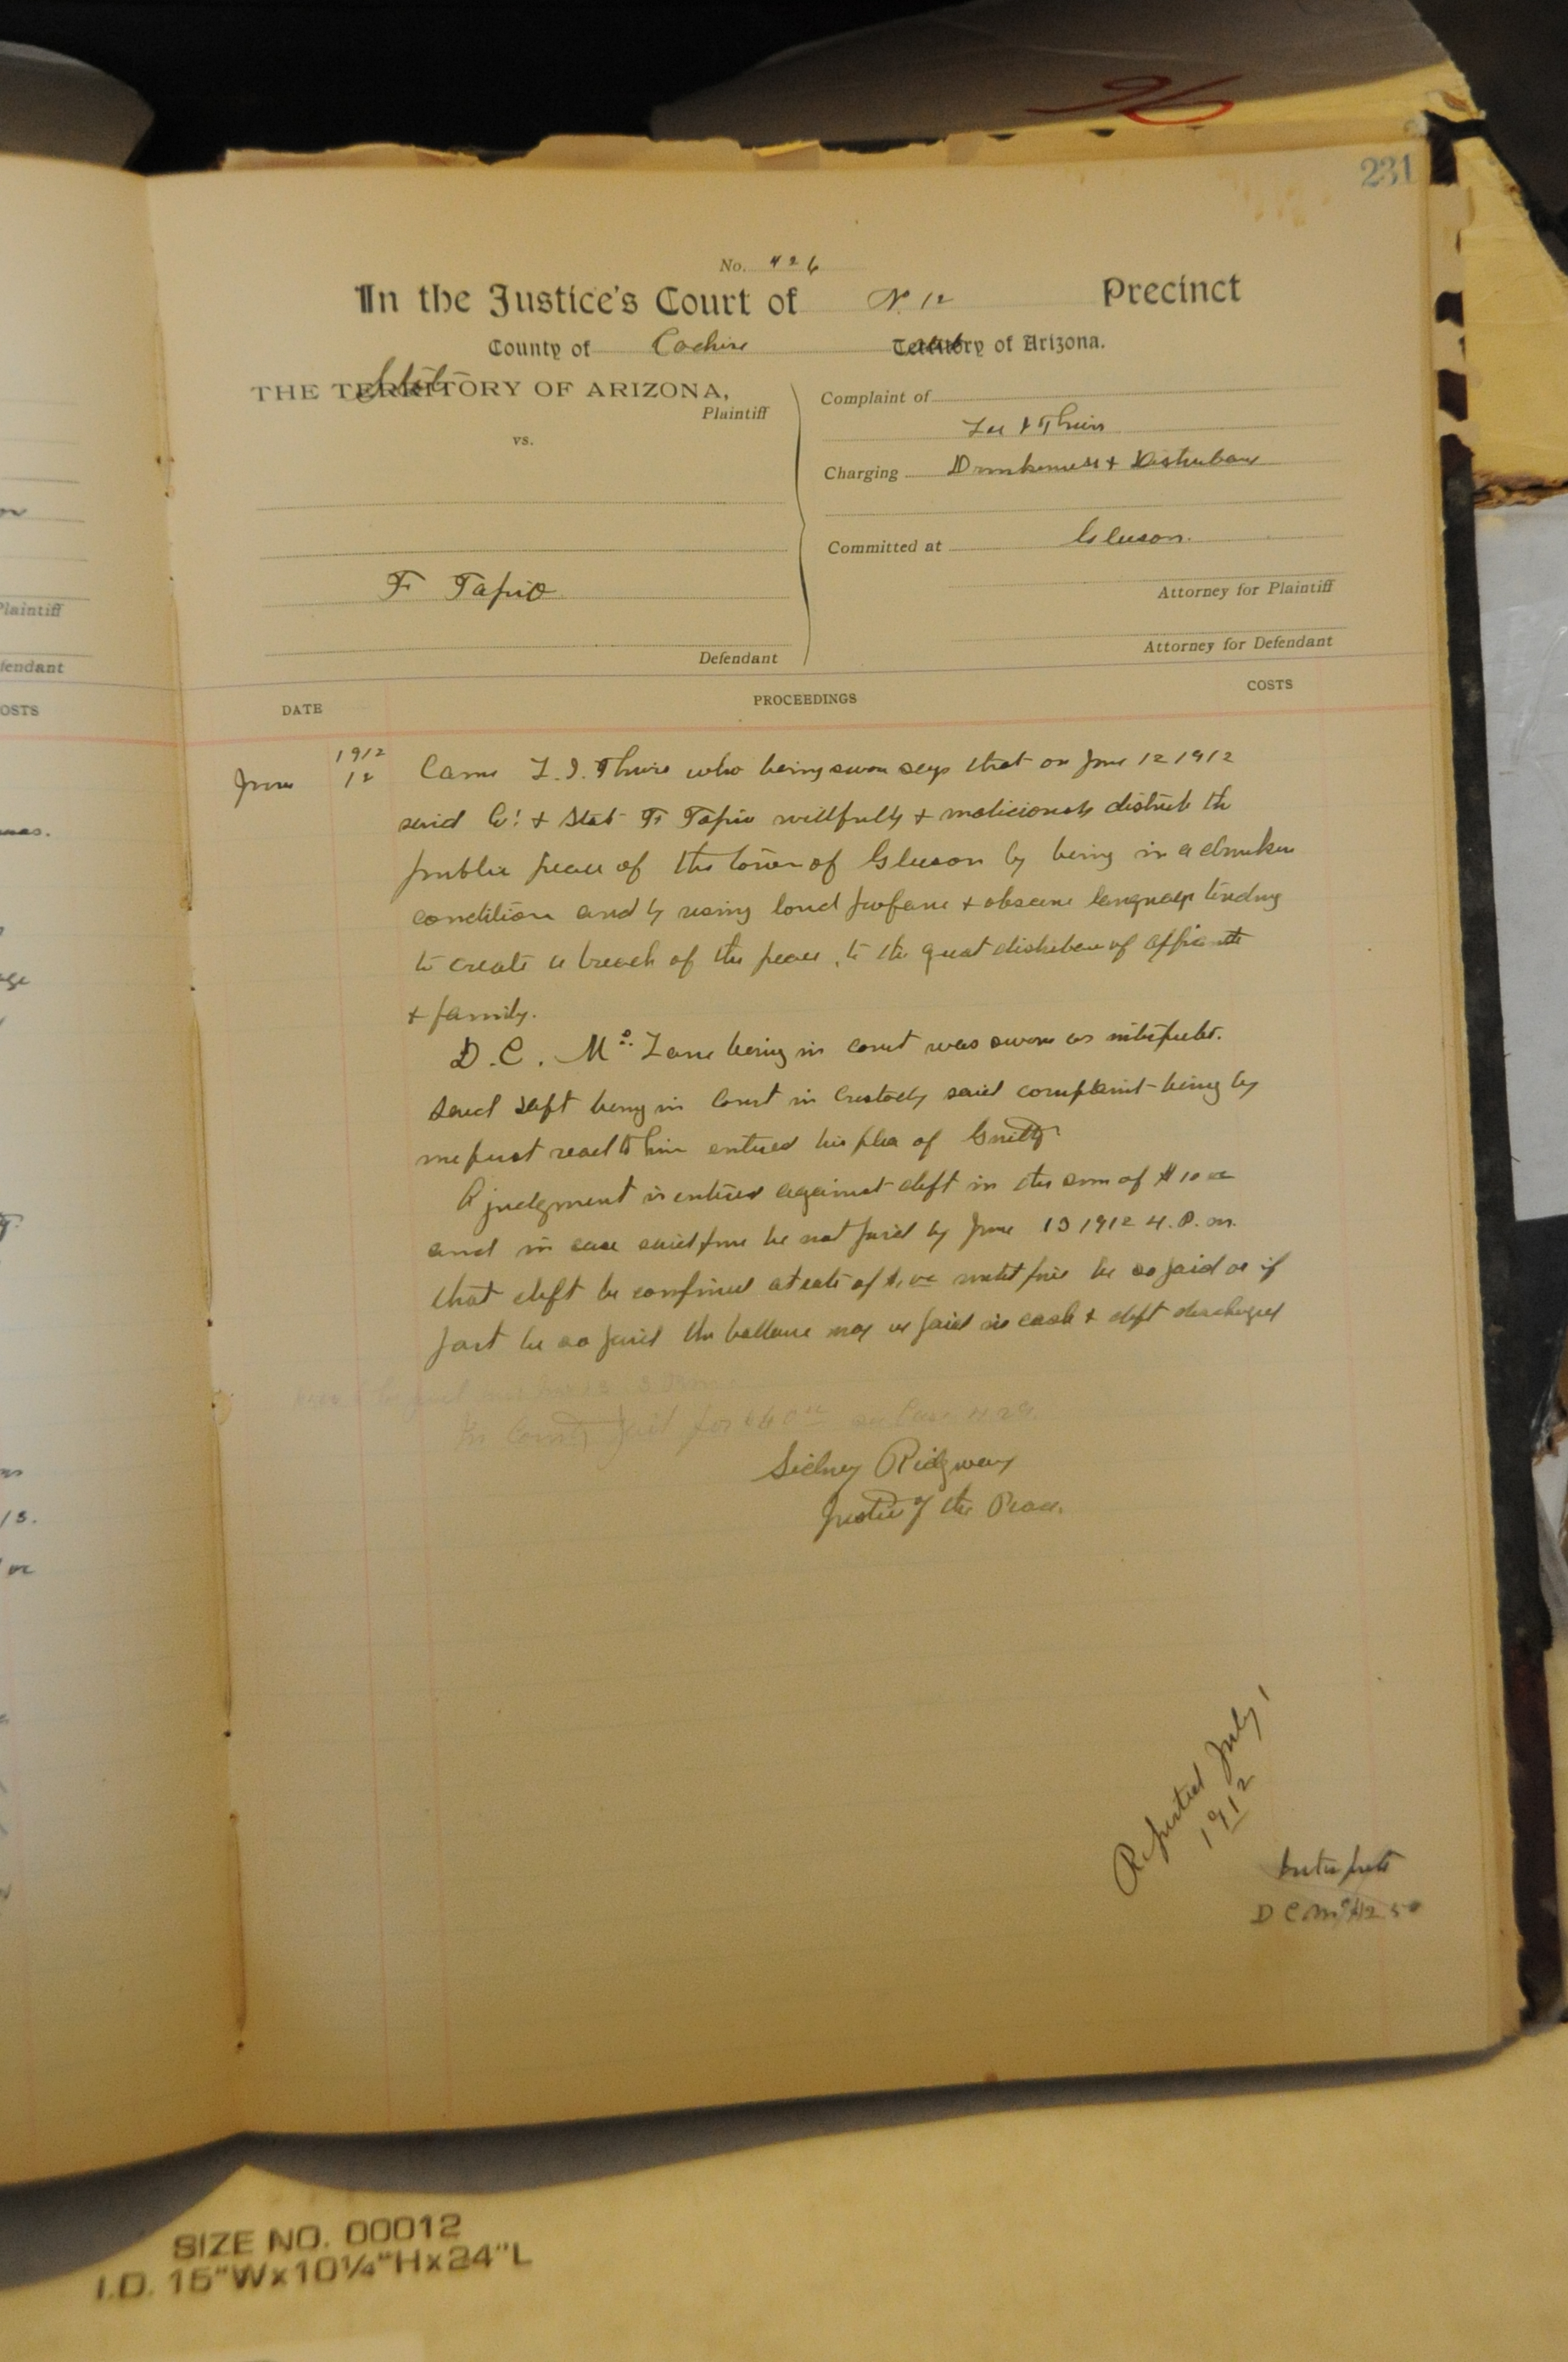 96
231
No. 426
In the Justice's Court of No 12 Precinct
County of Cochise Territory of Arizona.
State
THE TERRITORY OF ARIZONA,
Plaintiff
vs.
F Tapio
Defendant
Complaint of
Charging Drunkenness + Disturbance
Committed at Gleeson.
Attorney for Plaintiff
Attorney for Defendant
DATE PROCEEDINGS COSTS
1912
June 12 Came who being sworn says that on June 12 1912
said Co. + State F Tapio willfully + maliciously the
public peace of the town of Gleeson by being in a drunken
condition and by using loud profane + obscene language tending
to create a breach of the peace, to the great disturbance of affiants
+ family.
D. C. being in court was sworn as
Said deft being in Court in Custody said complaint being by
me first read to him entered his plea of Guilty
A judgment is entered against deft in the sum of $10 00
and in case said fine be not paid by June 13 1912 4. P. m.
that deft be confined at rate of until fine be so paid or if
part be so paid the ballance may be paid in cash + deft discharged
In County Jail for see Case 429.
Sidney Ridgway
Justice of the Peace.
Reported July 1
1912
D C 2 50
Plaintiff
fendant
OSTS
SIZE NO. 00012
I.D. 15"Wx10¼"Hx24"L